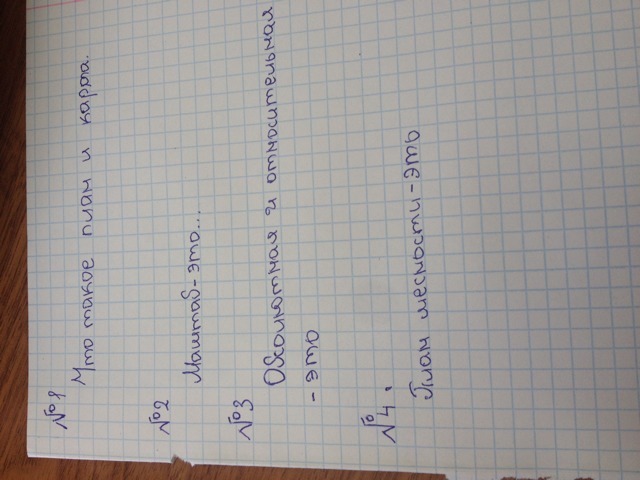 №1
Что такое план и карта.
№2
Маштаб-это...
№3
Обсолютная и относительная
- это
№4.
План месности-это